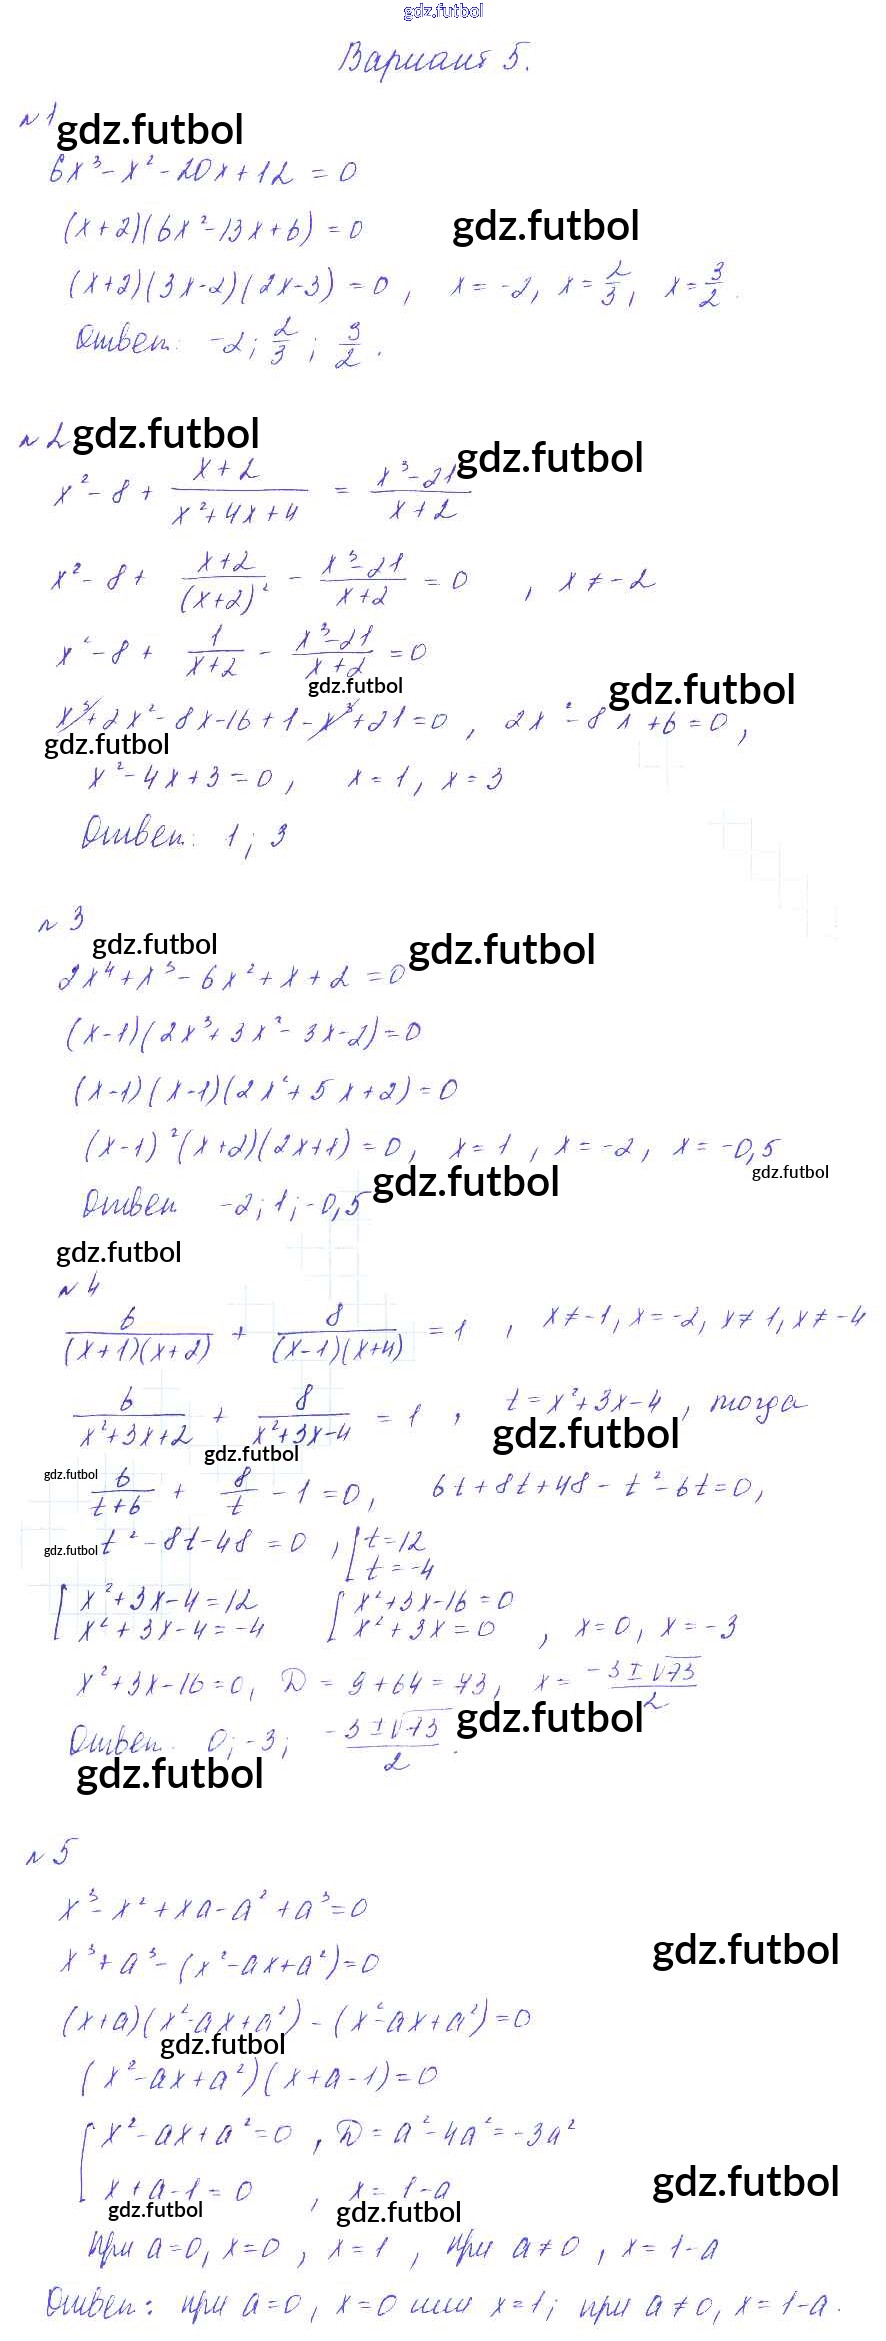 gdz.futbol
Вариант 5.
№1 gdz.futbol
6x³ - x² - 20x + 12 = 0
(x+2)(6x² - 13x + 6) = 0 gdz.futbol
(x+2)(3x-2)(2x-3) = 0, x = -2, x = 2/3, x = 3/2.
Ответ: -2; 2/3; 3/2.
№2 gdz.futbol
x² - 8 + (x+2)/(x²+4x+4) = (x³-21)/(x+2) gdz.futbol
x² - 8 + (x+2)/(x+2)² - (x³-21)/(x+2) = 0, x ≠ -2
x² - 8 + 1/(x+2) - (x³-21)/(x+2) = 0
gdz.futbol gdz.futbol
x³ + 2x² - 8x - 16 + 1 - x³ + 21 = 0, 2x² - 8x + 6 = 0,
gdz.futbol
x² - 4x + 3 = 0, x = 1, x = 3
Ответ: 1; 3
№3
gdz.futbol gdz.futbol
2x⁴ + x³ - 6x² + x + 2 = 0
(x-1)(2x³ + 3x² - 3x - 2) = 0
(x-1)(x-1)(2x² + 5x + 2) = 0
(x-1)²(x+2)(2x+1) = 0, x = 1, x = -2, x = -0,5
gdz.futbol gdz.futbol
Ответ -2; 1; -0,5
gdz.futbol
№4
6/((x+1)(x+2)) + 8/((x-1)(x+4)) = 1, x ≠ -1, x = -2, x ≠ 1, x ≠ -4
6/(x²+3x+2) + 8/(x²+3x-4) = 1, t = x² + 3x - 4, тогда
gdz.futbol gdz.futbol
gdz.futbol 6/(t+6) + 8/t - 1 = 0, 6t + 8t + 48 - t² - 6t = 0,
gdz.futbol t² - 8t - 48 = 0, [t = 12
t = -4
[x² + 3x - 4 = 12 [x² + 3x - 16 = 0
x² + 3x - 4 = -4 x² + 3x = 0, x = 0, x = -3
x² + 3x - 16 = 0, D = 9 + 64 = 73, x = (-3 ± √73)/2
gdz.futbol
Ответ. 0; -3; (-3 ± √73)/2.
gdz.futbol
№5
x³ - x² + xa - a² + a³ = 0
x³ + a³ - (x² - ax + a²) = 0 gdz.futbol
(x+a)(x² - ax + a²) - (x² - ax + a²) = 0
gdz.futbol
(x² - ax + a²)(x + a - 1) = 0
[x² - ax + a² = 0, D = a² - 4a² = -3a²
x + a - 1 = 0, x = 1 - a gdz.futbol
gdz.futbol gdz.futbol
При a = 0, x = 0, x = 1, при a ≠ 0, x = 1 - a
Ответ: при a = 0, x = 0 или x = 1; при a ≠ 0, x = 1 - a.